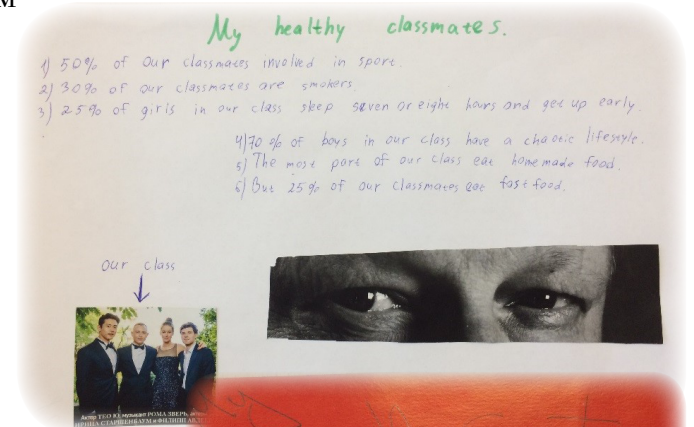 м
My healthy classmates.
1) 50% of our classmates involved in sport.
2) 30% of our classmates are smokers.
3) 25% of girls in our class sleep seven or eight hours and get up early.
4) 70% of boys in our class have a chaotic lifestyle.
5) The most part of our class eat homemade food.
6) But 25% of our classmates eat fast food.
our class
Актер ТЕО Ю, музыкант РОМА ЗВЕРЬ,
ИРИНА СТАРШЕНБАУМ и ФИЛИПП